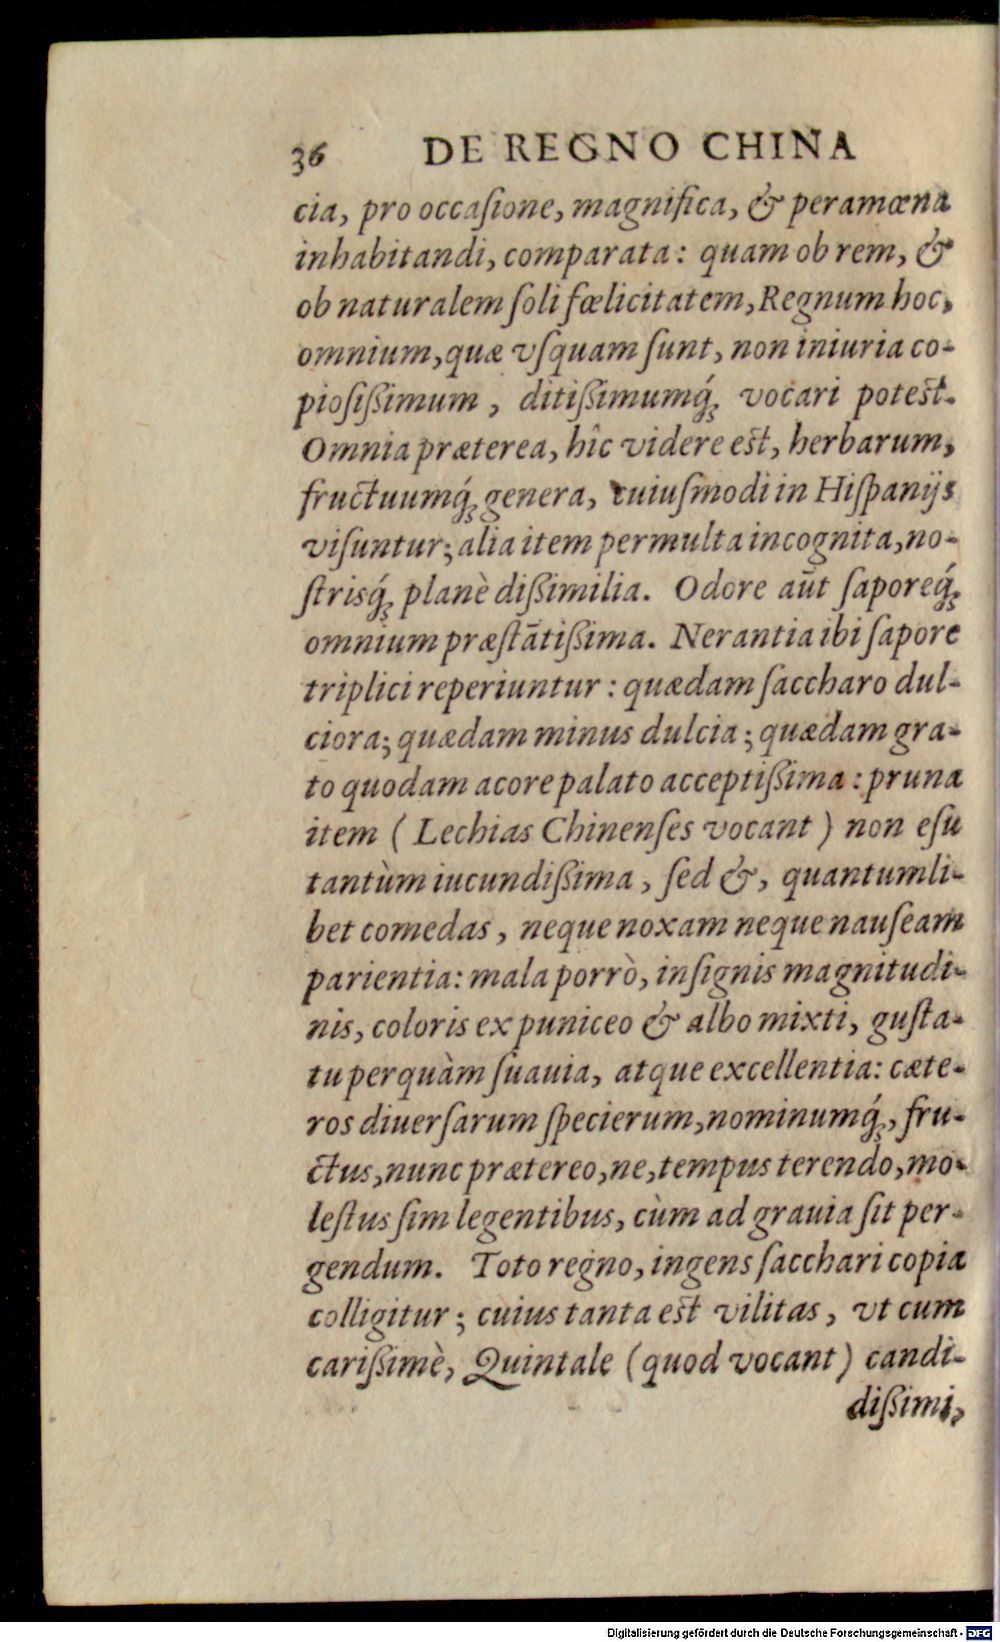 36 DE REGNO CHINA
cia, pro occaſione, magnifica, & peramœna
inhabitandi, comparata: quam ob rem, &
ob naturalem ſoli fœlicitatem, Regnum hoc,
omnium, quæ vſquam ſunt, non iniuria co-
pioſiſſimum, ditiſſimumq́; vocari poteſt.
Omnia præterea, hîc videre eſt, herbarum,
fructuumq́; genera, cuiuſmodi in Hiſpanijs
viſuntur; alia item permulta incognita, no-
ſtrisq́; planè diſſimilia. Odore aūt ſaporeq́;
omnium præſtātiſſima. Nerantia ibi ſapore
triplici reperiuntur: quædam ſaccharo dul-
ciora; quædam minus dulcia; quædam gra-
to quodam acore palato acceptiſſima: pruna
item (Lechias Chinenſes vocant) non eſu
tantùm iucundiſſima, ſed &, quantumli-
bet comedas, neque noxam neque nauſeam
parientia: mala porrò, inſignis magnitudi-
nis, coloris ex puniceo & albo mixti, guſta-
tu perquàm ſuauia, atque excellentia: cæte-
ros diuerſarum ſpecierum, nominumq́;, fru-
ctus, nunc prætereo, ne, tempus terendo, mo-
leſtus ſim legentibus, cùm ad grauia ſit per-
gendum. Toto regno, ingens ſacchari copia
colligitur; cuius tanta eſt vilitas, vt cum
cariſſimè, Quintale (quod vocant) candi-
diſſimi,
Digitalisierung gefördert durch die Deutsche Forschungsgemeinschaft - DFG